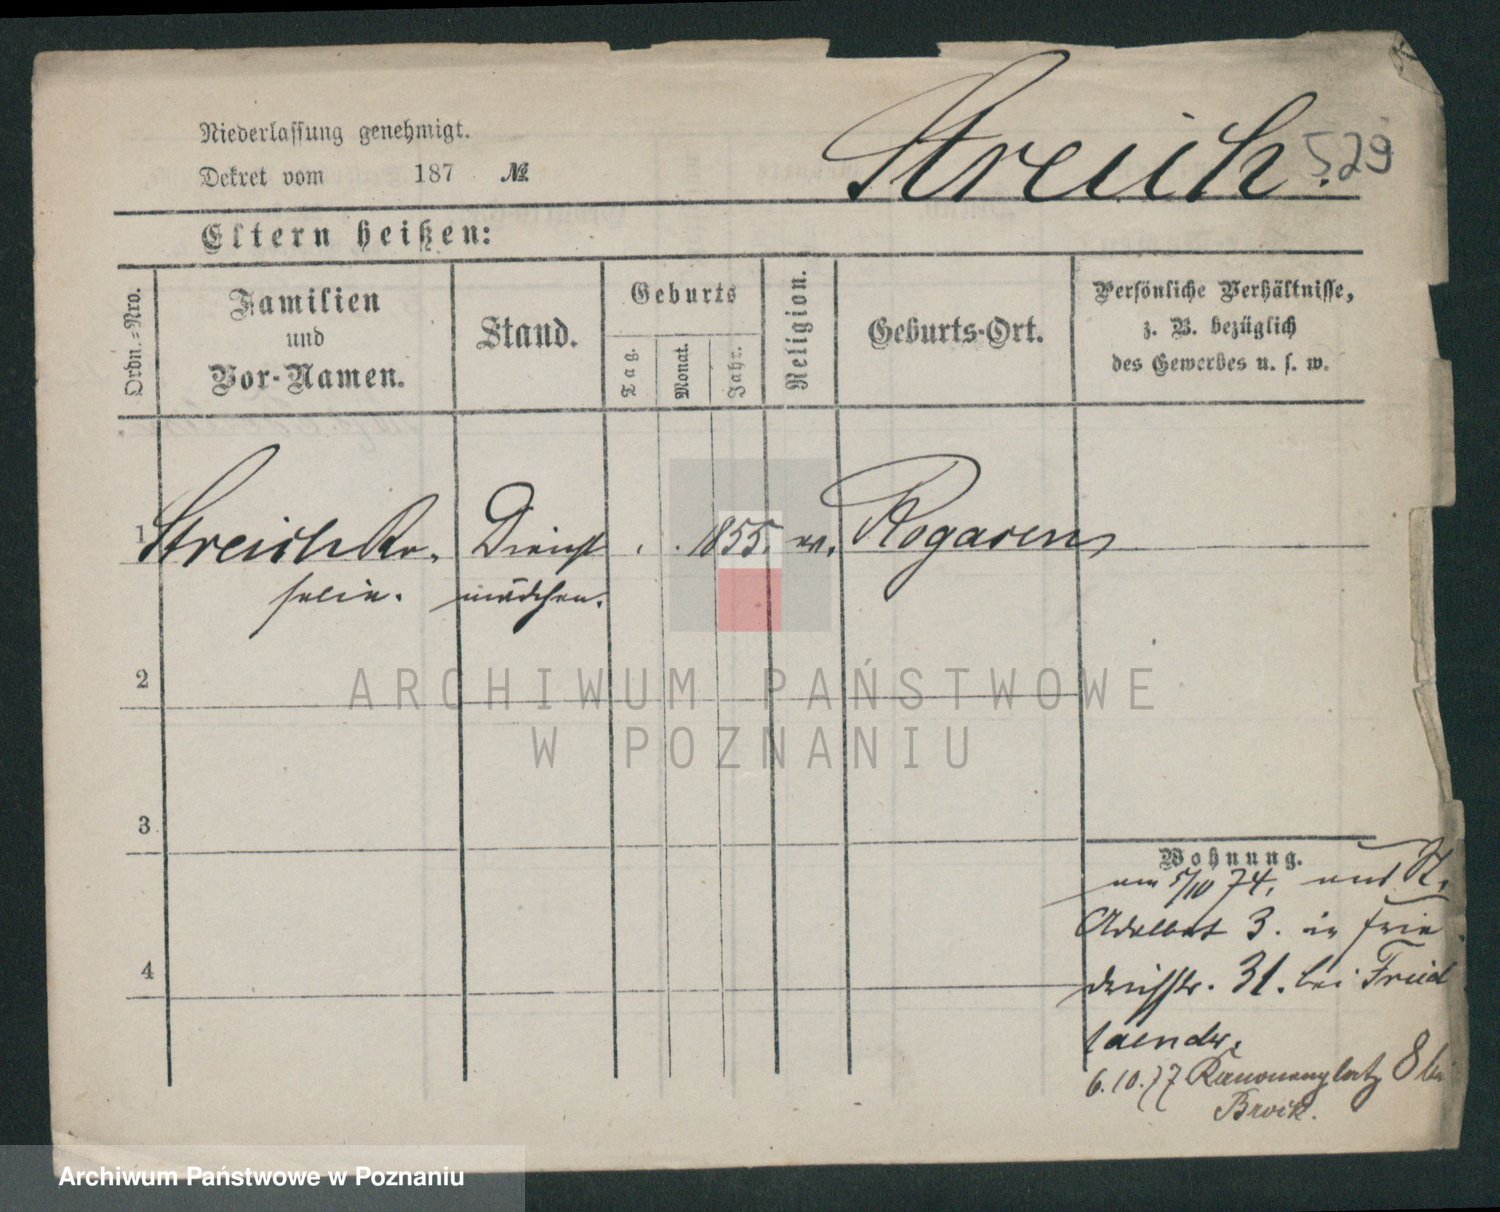 Niederlassung genehmigt.
Dekret vom 187 №
Streich.
529
Eltern heißen:
Ordn.-Nro.
Familien
und
Vor-Namen.
Stand.
Geburts
Tag.
Monat.
Jahr.
Religion.
Geburts-Ort.
Persönliche Verhältnisse,
z. B. bezüglich
des Gewerbes u. s. w.
1 Streich Ro- Dienst 1855. Rogasen
salie. mädchen.
2
3
4
Wohnung.
am 5/10 74, St.
Adelbert 3. in Frie
drichstr. 31. bei Fried
laender.
6.10.77 Kanonenplatz 8 bei
ARCHIWUM PAŃSTWOWE
W POZNANIU
Archiwum Państwowe w Poznaniu